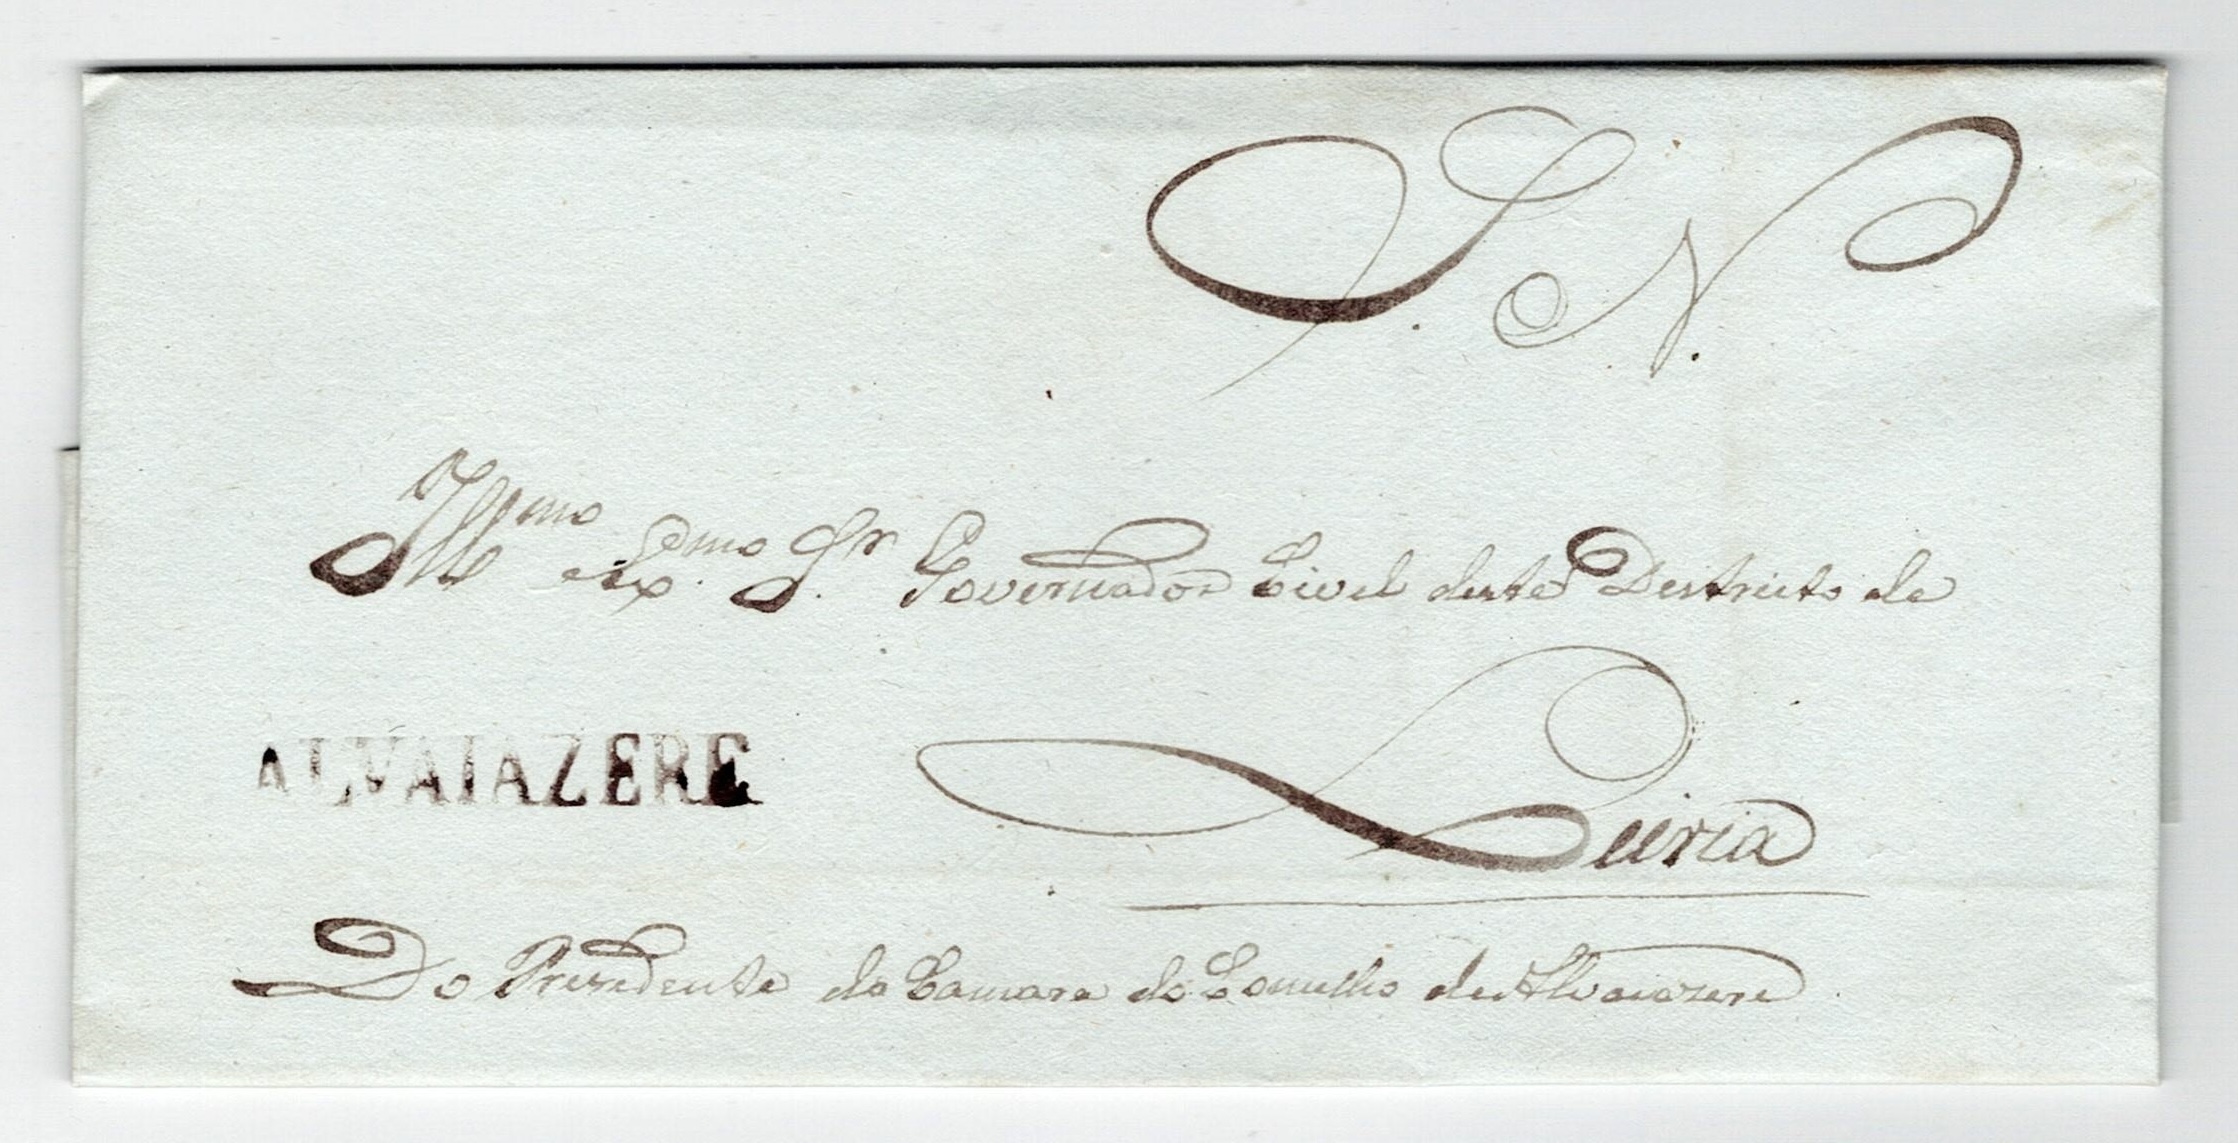 S. N.
Illmo e Exmo Sr. Governador Civel deste Destricto de
ALVAIAZERE
Leiria
Do Presidente da Camara do Conselho de Alvaiazere